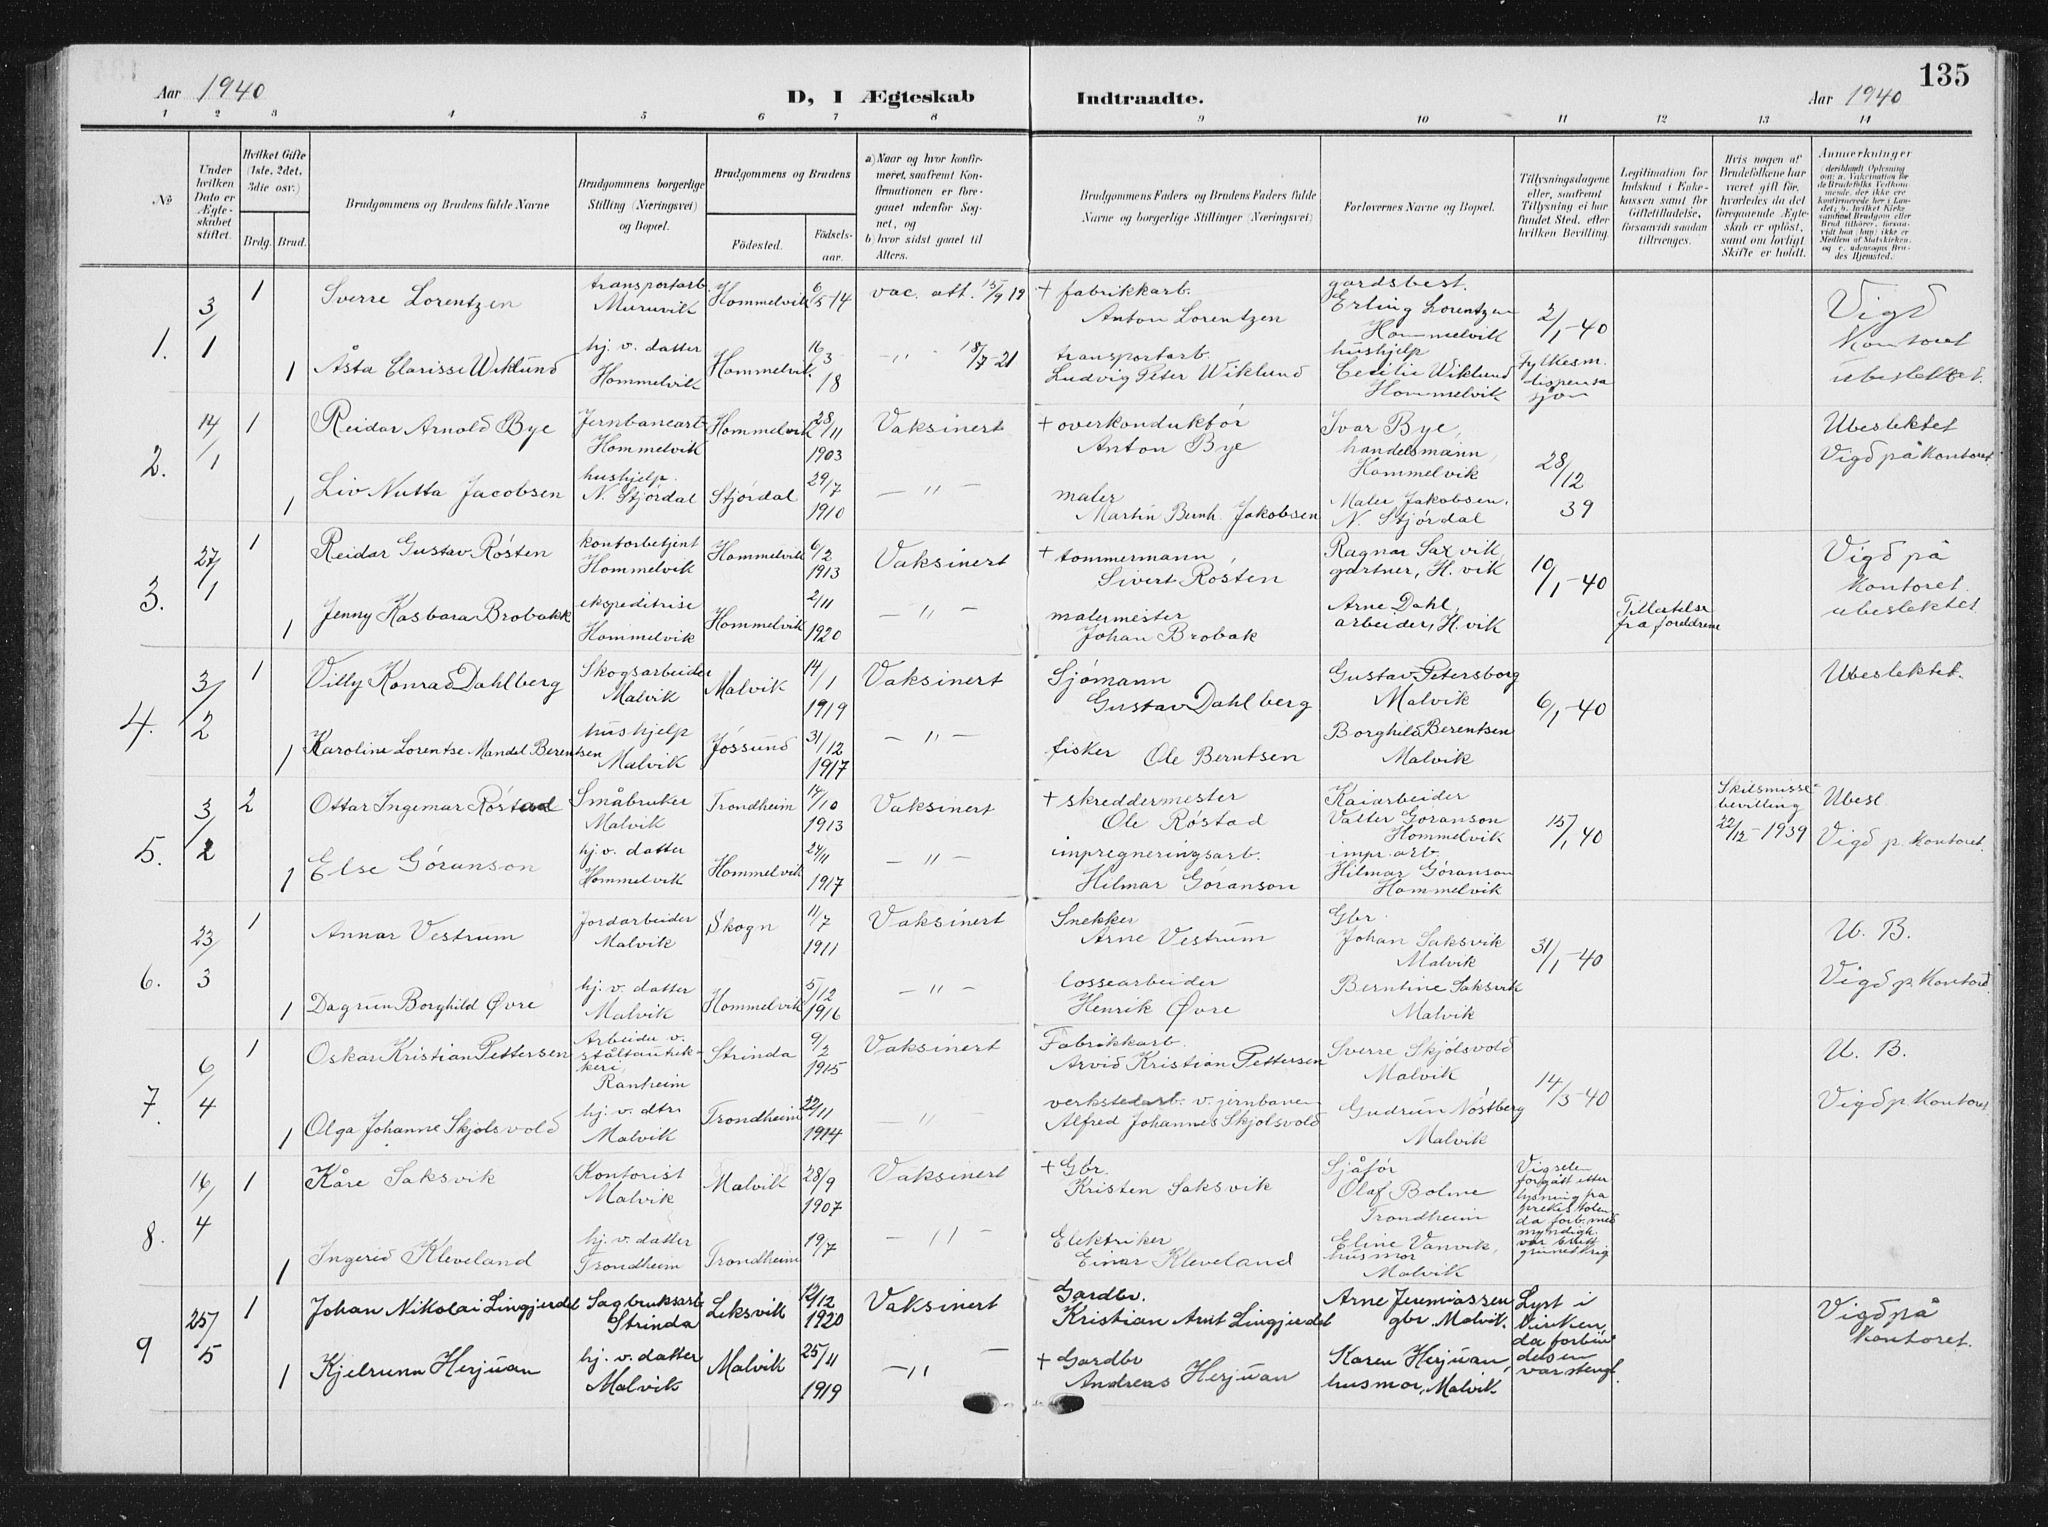 135
Aar 1940
D, I Ægteskab
Indtraadte.
Aar 1940
1 2 3 4 5 6 7 8 9 10 11 12 13 14
№
Under hvilken Dato er Ægteskabet stiftet.
Hvilket Gifte (1ste, 2det, 3die osv.)
Brdg. Brud.
Brudgommens og Brudens fulde Navne
Brudgommens borgerlige Stilling (Næringsvei) og Bopæl.
Brudgommens og Brudens
Fødested. Fødselsaar.
a) Naar og hvor konfirmeret, saafremt Konfirmationen er foregaaet udenfor Sognet, og
b) hvor sidst gaaet til Alters.
Brudgommens Faders og Brudens Faders fulde Navne og borgerlige Stillinger (Næringsvei)
Forlovernes Navne og Bopæl.
Tillysningsdagene eller, saafremt Tillysning ei har fundet Sted, efter hvilken Bevilling.
Legitimation for Indskud i Enkekassen samt for Giftetilladelse, forsaavidt saadan tiltrænges.
Hvis nogen af Brudefolkene har været gift før, hvorledes da det foregaaende Ægteskab er opløst, samt om lovligt Skifte er holdt.
Anmerkninger
1. 3/1
1 Sverre Lorentzen transportarb. Muruvik Hommelvik 6/5 14 vac. att. 15/9 19 + fabrikkarb. Anton Lorentzen gardsbest. Erling Lorentzen Hommelvik 2/1-40 Vigd Kontoret ubeslektet.
1 Åsta Clarisse Wiklund hj. v. datter Hommelvik Hommelvik 16/3 18 —"— 18/7-21 transportarb. Ludvig Peter Wiklund hushjelp Cecilie Wiklund Hommelvik fylkesm. dispensasjon
2. 14/1
1 Reidar Arnold Bye Jernbanearb. Hommelvik Hommelvik 28/11 1903 Vaksinert + overkonduktør Anton Bye Ivar Bye, handelsmann, Hommelvik 28/12 39 Ubeslektet Vigd på kontoret
1 Liv Nutta Jacobsen hushjelp. N. Stjørdal Stjørdal 29/7 1910 —"— maler Martin Bernh. Jakobsen Maler Jakobsen. N. Stjørdal
3. 27/1
1 Reidar Gustav Røsten kontorbetjent Hommelvik Hommelvik 6/2 1913 Vaksinert + tømmermann Sivert Røsten Ragnar Saxvik, gartner, H.vik 10/1-40 Vigd på kontoret. ubeslektet
1 Jenny Kasbara Brobakk ekspeditrise Hommelvik Hommelvik 2/11 1920 —"— malermester Johan Brobak Arne Dahl, arbeider, H.vik Tillatelse fra foreldrene
4. 3/2
1 Villy Konrad Dahlberg Skogsarbeider Malvik Malvik 14/1 1919 Vaksinert Sjømann Gustav Dahlberg Gustav Petersborg Malvik 6/1-40 Ubeslektet.
1 Karoline Lorentse Mandel Berentsen hushjelp Malvik Jøssund 31/12 1917 —"— fisker Ole Berntsen Borghild Berentsen Malvik
5. 3/2
2 Ottar Ingemar Røstad Småbruker Malvik Trondheim 14/10 1913 Vaksinert + skreddermester Ole Røstad Kaiarbeider Valter Gøranson Hommelvik 15/1 40 Skilsmissebevilling 22/12-1939 Ubesl. Vigd p. kontoret.
1 Else Gøranson hj. v. datter Hommelvik Hommelvik 24/11 1917 —"— inpregneringsarb. Hilmar Gøranson impr. arb. Hilmar Gøranson Hommelvik
6. 23/3
1 Annar Vestrum Jordarbeider Malvik Skogn 11/7 1911 Vaksinert Snekker Arne Vestrum Gbr. Johan Saksvik Malvik 31/1-40 U. B. Vigd p. kontoret
1 Dagrun Borghild Øvre hj. v. datter Malvik Hommelvik 5/12 1916 —"— lossearbeider Henrik Øvre Berntine Saksvik Malvik
7. 6/4
1 Oskar Kristian Pettersen Arbeider v. Ranheim Strinda 9/2 1915 Vaksinert Fabrikkarb. Arvid Kristian Pettersen Sverre Skjølsvold Malvik 14/3-40 U. B. Vigd p. Kontoret.
1 Olga Johanne Skjølsvold hj. v. dtr. Malvik Trondheim 22/11 1914 —"— verkstedarb. v. jernbanen Alfred Johannes Skjølsvold Gudrun Nøstberg Malvik
8. 16/4
1 Kåre Saksvik Kontorist Malvik Malvik 28/9 1907 Vaksinert + Gbr. Kristen Saksvik Sjåfør Olaf Bolme Trondheim Vigselen forgått etter lysning på prekestolen da forb. med myndigh. var brutt grunnet krig
1 Ingerid Kleveland hj. v. datter Trondheim Trondheim 19/7 —"— Elektriker Einar Kleveland Eline Vanvik, husmor Malvik
9 25/5
1 Johan Nikolai Lingjerdet Sagbruksarb. Strinda Leksvik 12/12 1920 Vaksinert Gardbr. Kristian Arnt Lingjerdet Arne Jeremiassen gbr. Malvik. Lyst i kirken, da forbindelsen var stengt. Vigd på kontoret.
1 Kjelrunn Herjuan hj. v. datter Malvik Malvik 25/11 1919 —"— + Gardbr Andreas Herjuan Karen Herjuan, husmor, Malvik